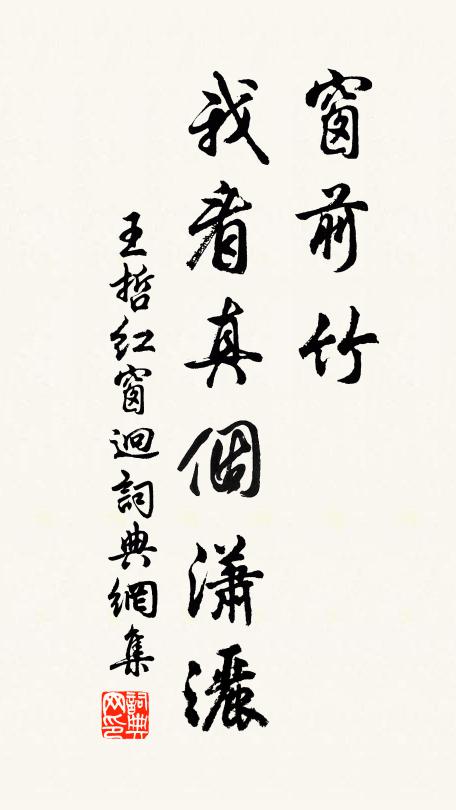 窗前竹
我看真個瀟灑
王哲紅窗迥詞典網集
詞典網印